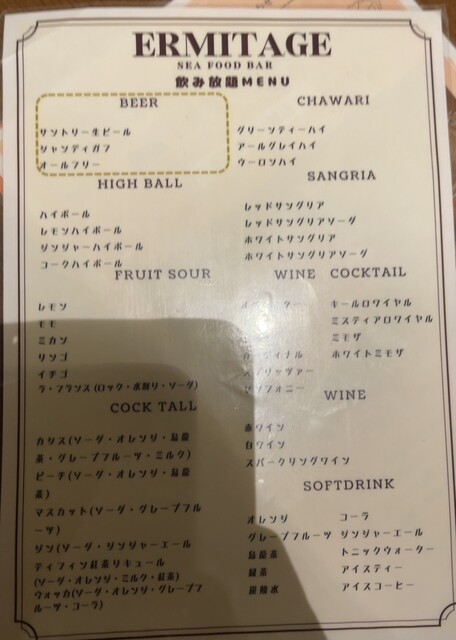 ERMITAGE
SEA FOOD BAR
飲み放題MENU
BEER
サントリー生ビール
シャンディガフ
オールフリー
HIGH BALL
ハイボール
レモンハイボール
ジンジャーハイボール
コークハイボール
FRUIT SOUR
レモン
モモ
ミカン
リンゴ
イチゴ
ラ・フランス(ロック・水割り・ソーダ)
COCK TALL
カシス(ソーダ・オレンジ・烏龍
茶・グレープフルーツ・ミルク)
ピーチ(ソーダ・オレンジ・烏龍
茶)
マスカット(ソーダ・グレープフル
ーツ)
ジン(ソーダ・ジンジャーエール
ティフィン紅茶リキュール
(ソーダ・オレンジ・ミルク・紅茶)
ウォッカ(ソーダ・オレンジ・グレープフ
ルーツ・コーラ)
CHAWARI
グリーンティーハイ
アールグレイハイ
ウーロンハイ
SANGRIA
レッドサングリア
レッドサングリアソーダ
ホワイトサングリア
ホワイトサングリアソーダ
WINE COCKTAIL
キールロワイヤル
ミスティアロワイヤル
ミモザ
ホワイトミモザ
WINE
赤ワイン
白ワイン
スパークリングワイン
SOFTDRINK
オレンジ コーラ
グレープフルーツ ジンジャーエール
烏龍茶 トニックウォーター
緑茶 アイスティー
炭酸水 アイスコーヒー